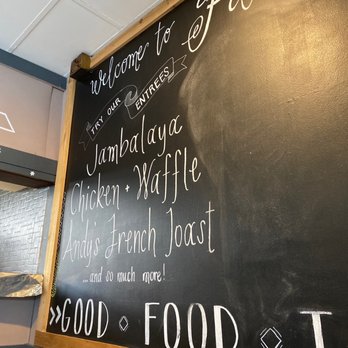 Welcome to
TRY OUR
ENTREES
Jambalaya
Chicken + Waffle
Andy's French Toast
...and so much more!
>>GOOD ◇ FOOD ◇ T